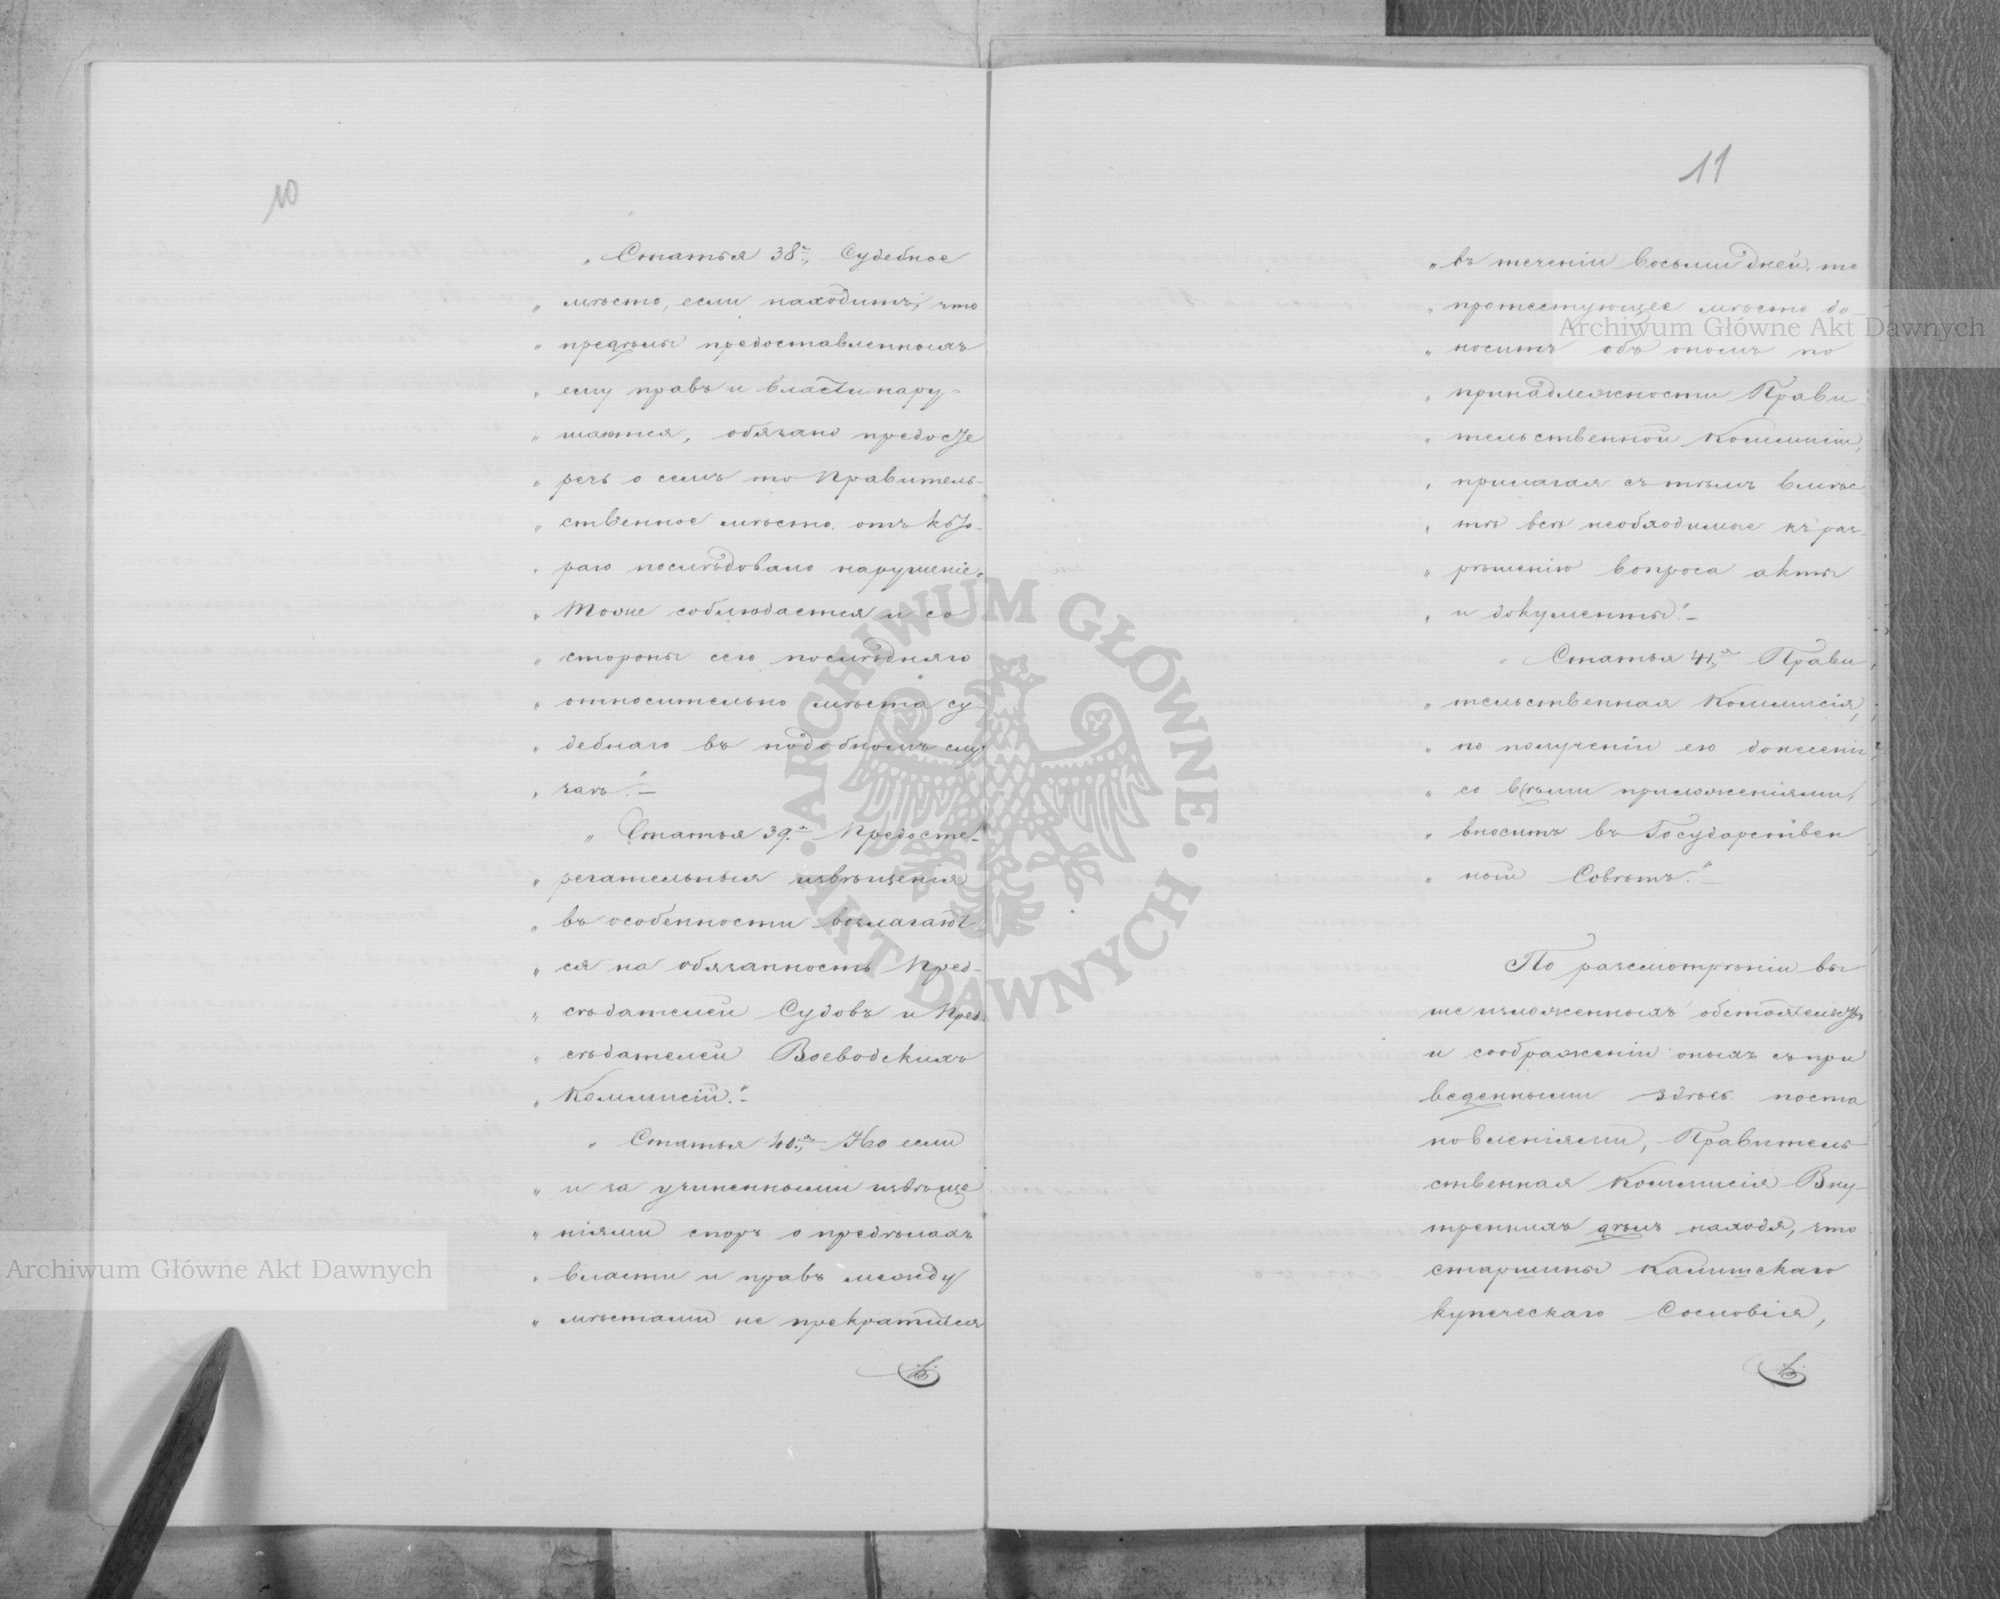 10
„ Статья 38я., Судебное
„ мѣсто, если находитъ, что
„ предѣлы предоставленныхъ
„ ему правъ и власти нару-
„ шаются, обязано предосте
„ речь о семъ то Правитель-
„ ственное мѣсто, отъ кото-
„ раго послѣдовало нарушеніе.
„ Тоже соблюдается и со
„ стороны сего послѣдняго
„ относительно мѣста су
„ дебнаго въ подобномъ слу
„ чаѣ.“ —
„ Статья 39.я Предосте-
„ регательныя извѣщенія
„ въ особенности возлагают-
„ ся на обязанность Пред-
„ сѣдателей Судовъ и Пред-
„ сѣдателей Воеводскихъ
„ Коммисій.“ —
„ Статья 40.,я Но если
„ и за учиненными извѣще
„ ніями споръ о предѣлахъ
„ власти и правъ между
„ мѣстами не прекратится
11
„ въ теченіи восьми дней, то
„ протестующее мѣсто до-
„ носитъ объ ономъ по
„ принадлежности Прави
„ тельственной Коммисіи,
„ прилагая съ тѣмъ вмѣс
„ тѣ всѣ необходимые къ раз-
„ рѣшенію вопроса акты
„ и документы.“ —
„ Статья 41.,я Прави
„ тельственная Коммисія,
„ по полученіи ею донесенія
„ со всѣми приложеніями,
„ вноситъ въ Государствен
„ ный Совѣтъ.“ —
По разсмотрѣніи вы
ше изложенныхъ обстоятельствъ
и соображеніи оныхъ съ при
веденными здѣсь поста
новленіями, Правитель
ственная Коммисія Вну-
треннихъ дѣлъ находя, что
старшины Калишскаго
купеческаго Сословія,
Archiwum Główne Akt Dawnych
Archiwum Główne Akt Dawnych
ARCHIWUM GŁÓWNE · AKT DAWNYCH ·